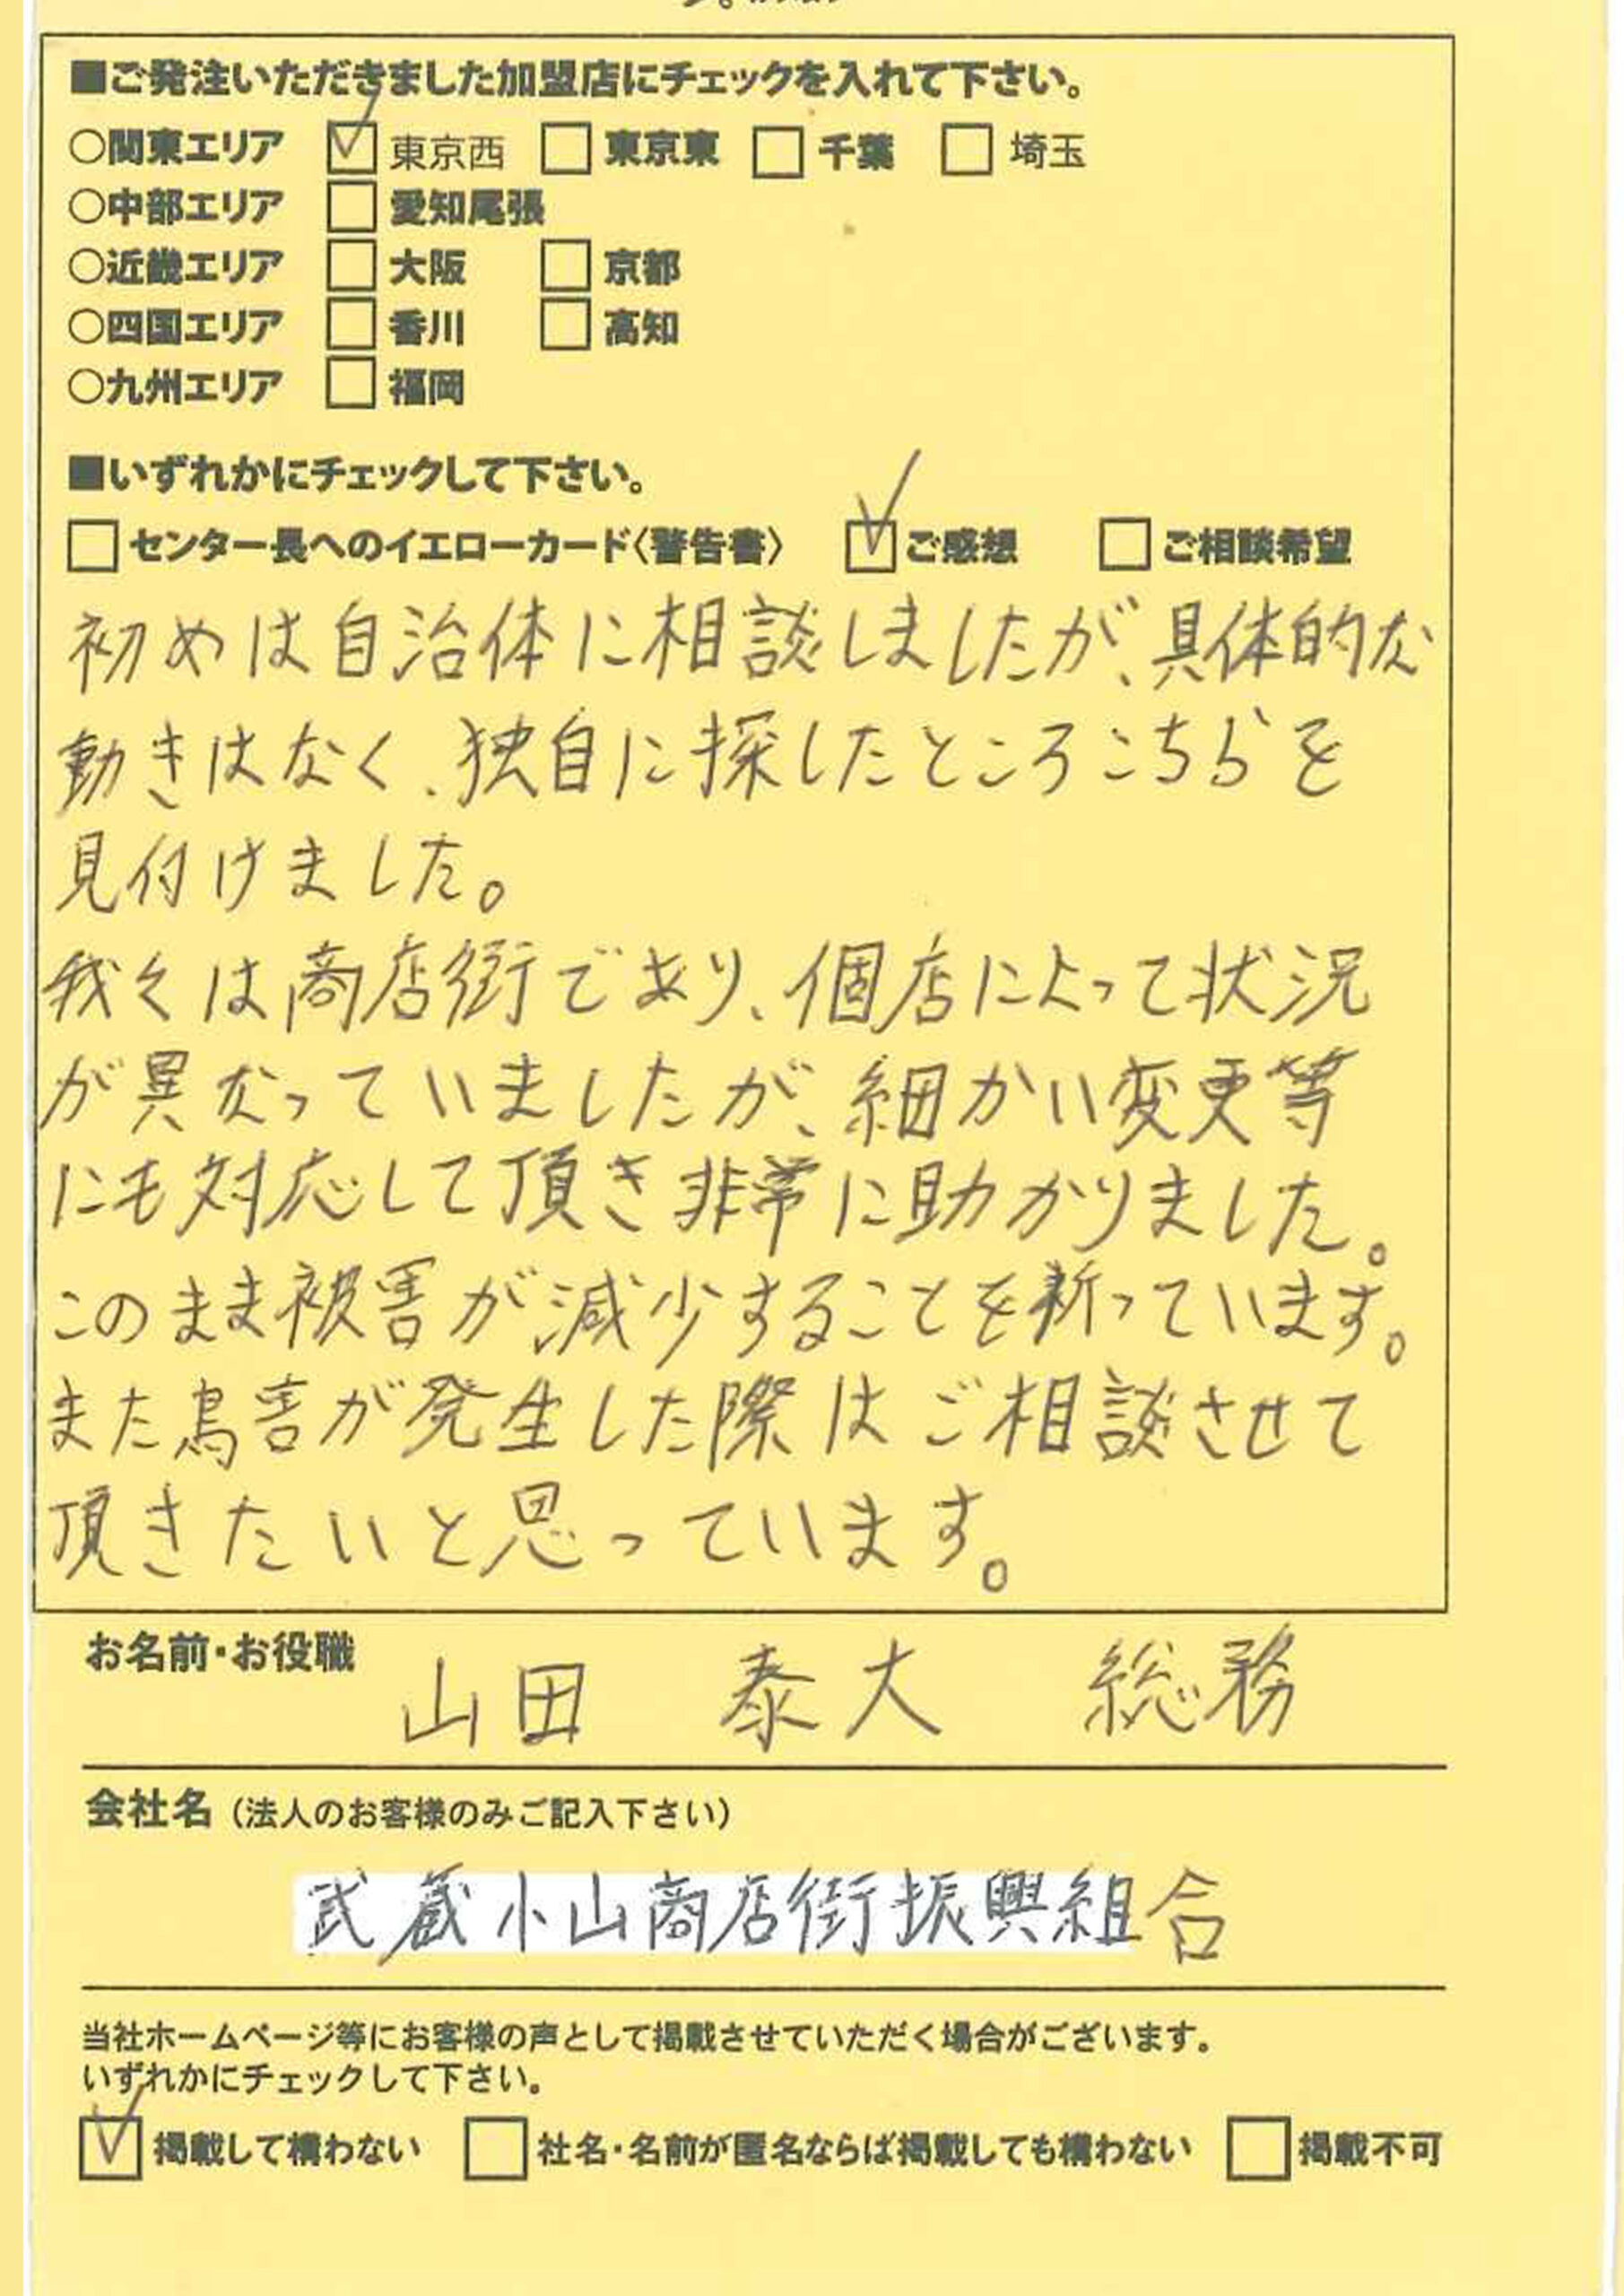 ■ご発注いただきました加盟店にチェックを入れて下さい。
○関東エリア ☑ 東京西 □ 東京東 □ 千葉 □ 埼玉
○中部エリア □ 愛知尾張
○近畿エリア □ 大阪 □ 京都
○四国エリア □ 香川 □ 高知
○九州エリア □ 福岡
■いずれかにチェックして下さい。
□ センター長へのイエローカード〈警告書〉 ☑ ご感想 □ ご相談希望
初めは自治体に相談しましたが、具体的な
動きはなく、独自に探したところこちらを
見付けました。
我々は商店街であり、個店によって状況
が異なっていましたが、細かい変更等
にも対応して頂き非常に助かりました。
このまま被害が減少することを祈っています。
また鳥害が発生した際はご相談させて
頂きたいと思っています。
お名前・お役職 山田 泰大 総務
会社名（法人のお客様のみご記入下さい）
武蔵小山商店街振興組合
当社ホームページ等にお客様の声として掲載させていただく場合がございます。
いずれかにチェックして下さい。
☑ 掲載して構わない □ 社名・名前が匿名ならば掲載しても構わない □ 掲載不可